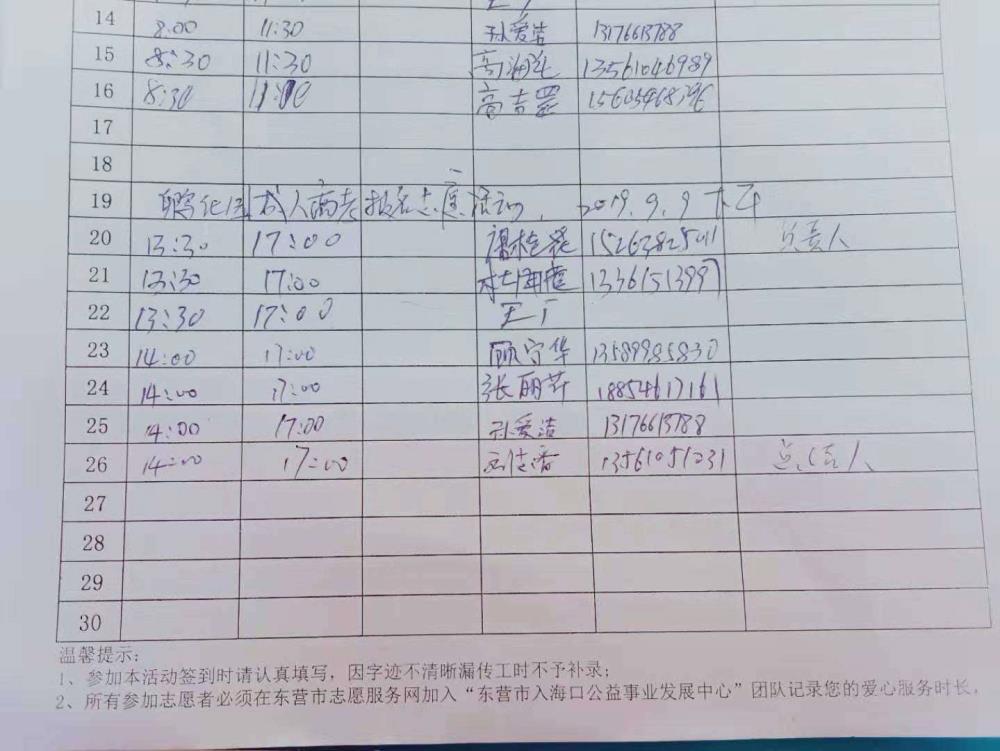 14 8:00 11:30 孙爱洁 13176613788
15 8:30 11:30 13561046989
16 8:30 11:00 高吉罡
17
18
19 孵化 成人高考报名志愿活动, 2019.9.9 下午
20 13:30 17:00 15263825011 负责人
21 13:30 17:00 13361513997
22 13:30 17:00 王丁
23 14:00 17:00 顾宁华 13589985830
24 14:00 17:00 张丽芹 18854617161
25 14:00 17:00 孙爱洁 13176613788
26 14:00 17:00 13561051231 负责人
27
28
29
30
温馨提示:
1、参加本活动签到时请认真填写，因字迹不清晰漏传工时不予补录;
2、所有参加志愿者必须在东营市志愿服务网加入“东营市入海口公益事业发展中心”团队记录您的爱心服务时长，